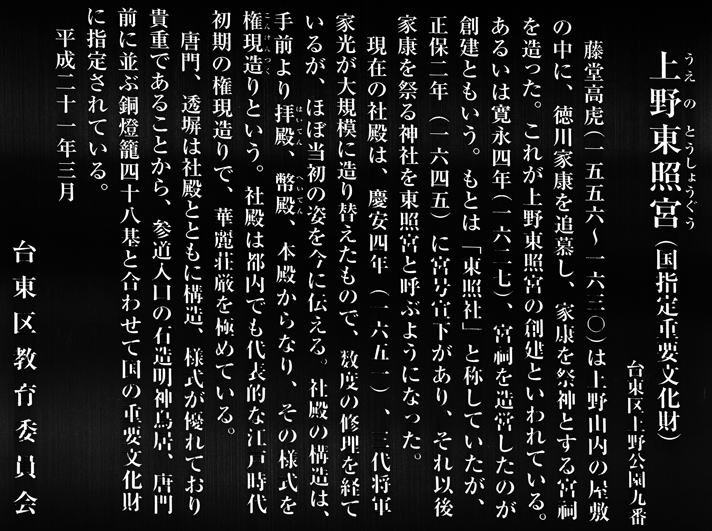 上野東照宮(国指定重要文化財)
うえの とうしょうぐう
台東区上野公園九番
藤堂高虎(一五五六〜一六三〇)は上野山内の屋敷
の中に、徳川家康を追慕し、家康を祭神とする宮祠
を造った。これが上野東照宮の創建といわれている。
あるいは寛永四年(一六二七)、宮祠を造営したのが
創建ともいう。もとは「東照社」と称していたが、
正保二年(一六四五)に宮号宣下があり、それ以後
家康を祭る神社を東照宮と呼ぶようになった。
現在の社殿は、慶安四年(一六五一)、三代将軍
家光が大規模に造り替えたもので、数度の修理を経て
いるが、ほぼ当初の姿を今に伝える。社殿の構造は、
手前より拝殿、幣殿、本殿からなり、その様式を
はいでん へいでん
権現造りという。社殿は都内でも代表的な江戸時代
ごんげんづく
初期の権現造りで、華麗荘厳を極めている。
唐門、透塀は社殿とともに構造、様式が優れており
貴重であることから、参道入口の石造明神鳥居、唐門
前に並ぶ銅燈籠四十八基と合わせて国の重要文化財
に指定されている。
平成二十一年三月
台東区教育委員会